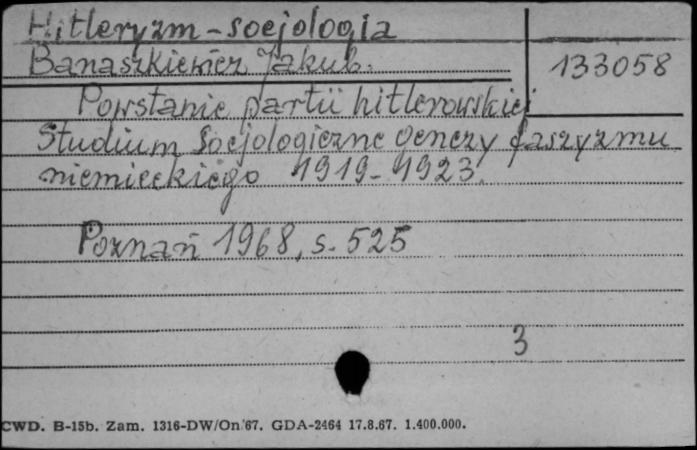 Hitleryzm - socjologia
Banaszkiewicz Jakub. 133058
Powstanie partii hitlerowskiej
Studium socjologiczne genezy faszyzmu
niemieckiego 1919-1923.
Poznań 1968, s. 525
3
CWD. B-15b. Zam. 1316-DW/On/67. GDA-2464 17.8.67. 1.400.000.